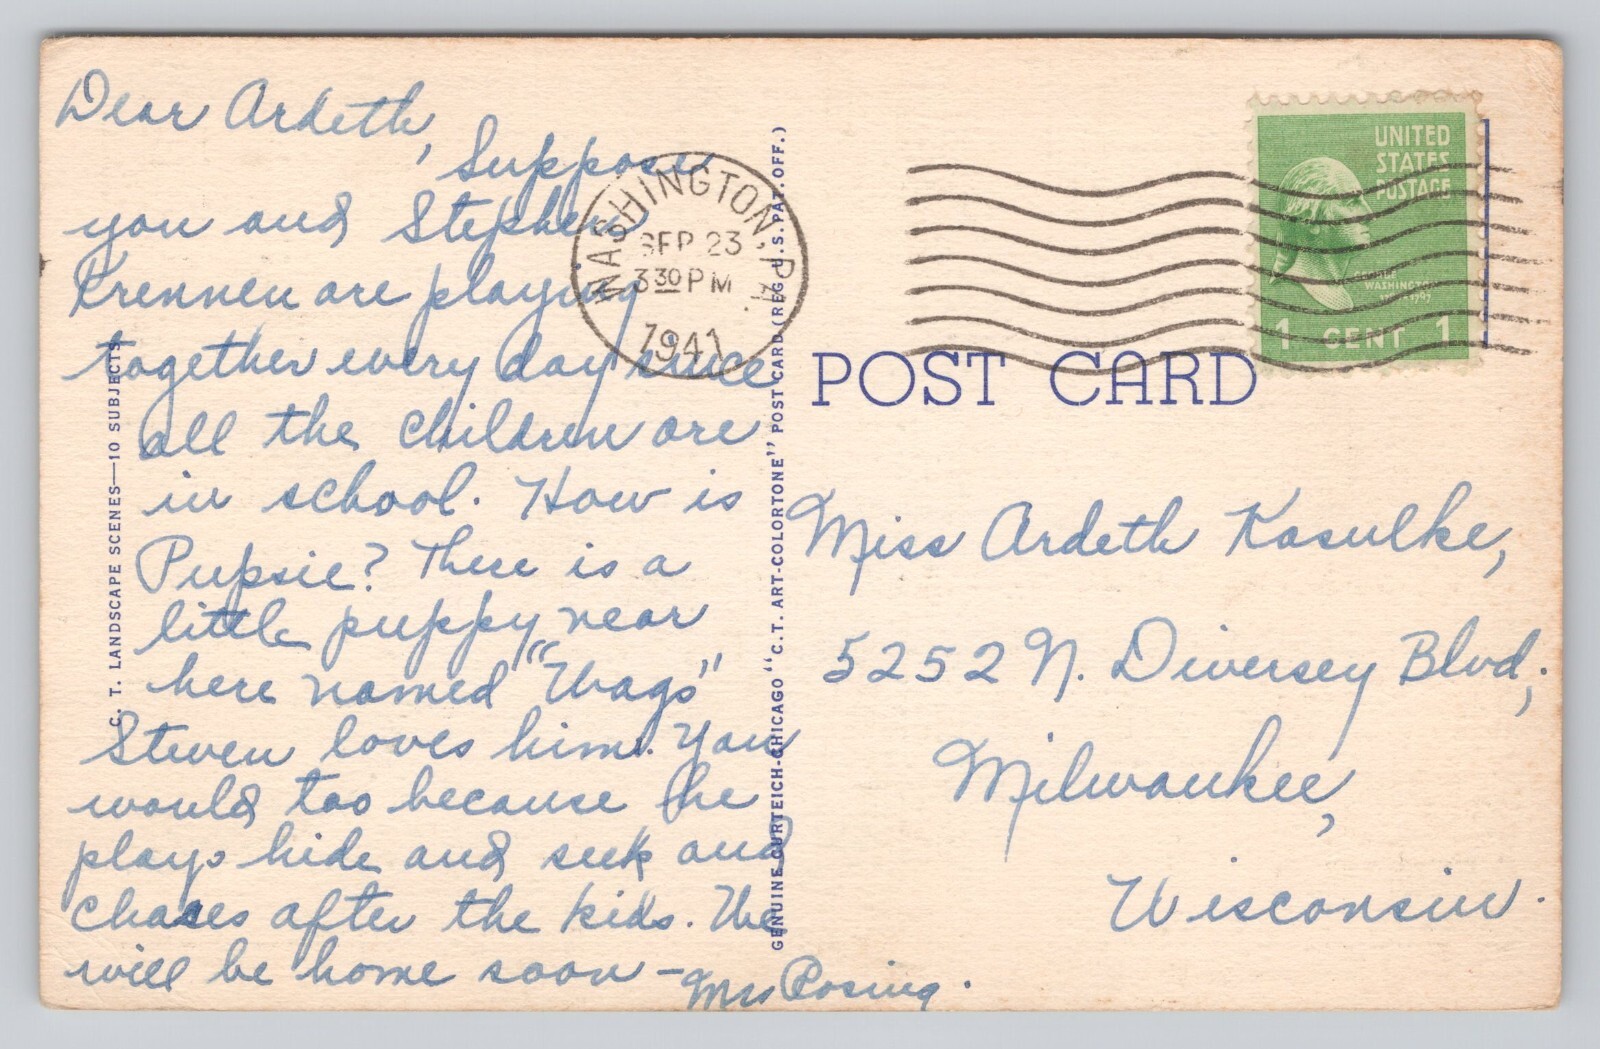 Dear Ardeth,
Suppose
you and Stephen
Krennen are playing
together every day since
all the children are
in school. How is
Pupsie? There is a
little puppy near
here named "Wags"
Steven loves him. You
would too because he
plays hide and seek and
chases after the kids. We
will be home soon -
Mrs Rosing.
C. T. LANDSCAPE SCENES—10 SUBJECTS
GENUINE CURTEICH-CHICAGO "C.T. ART-COLORTONE" POST CARD (REG. U.S. PAT. OFF.)
WASHINGTON, PA.
SEP 23
3 30 PM
1941
UNITED
STATES
POSTAGE
WASHINGTON
1 CENT 1
POST CARD
Miss Ardeth Kasulke,
5252 N. Diversey Blvd.,
Milwaukee,
Wisconsin.